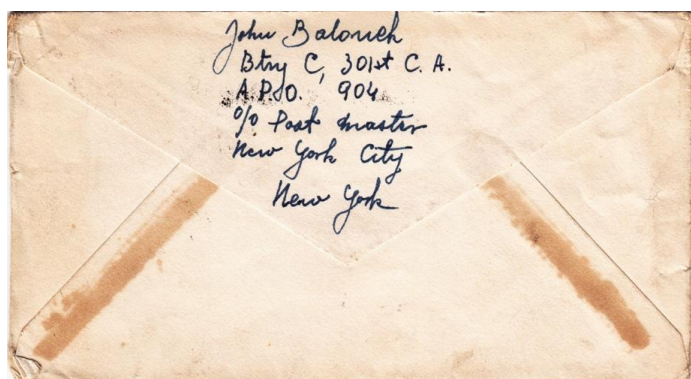 John Balouch
Btry C, 301st C. A.
A.P.O. 904
c/o Post master
New York City
New York